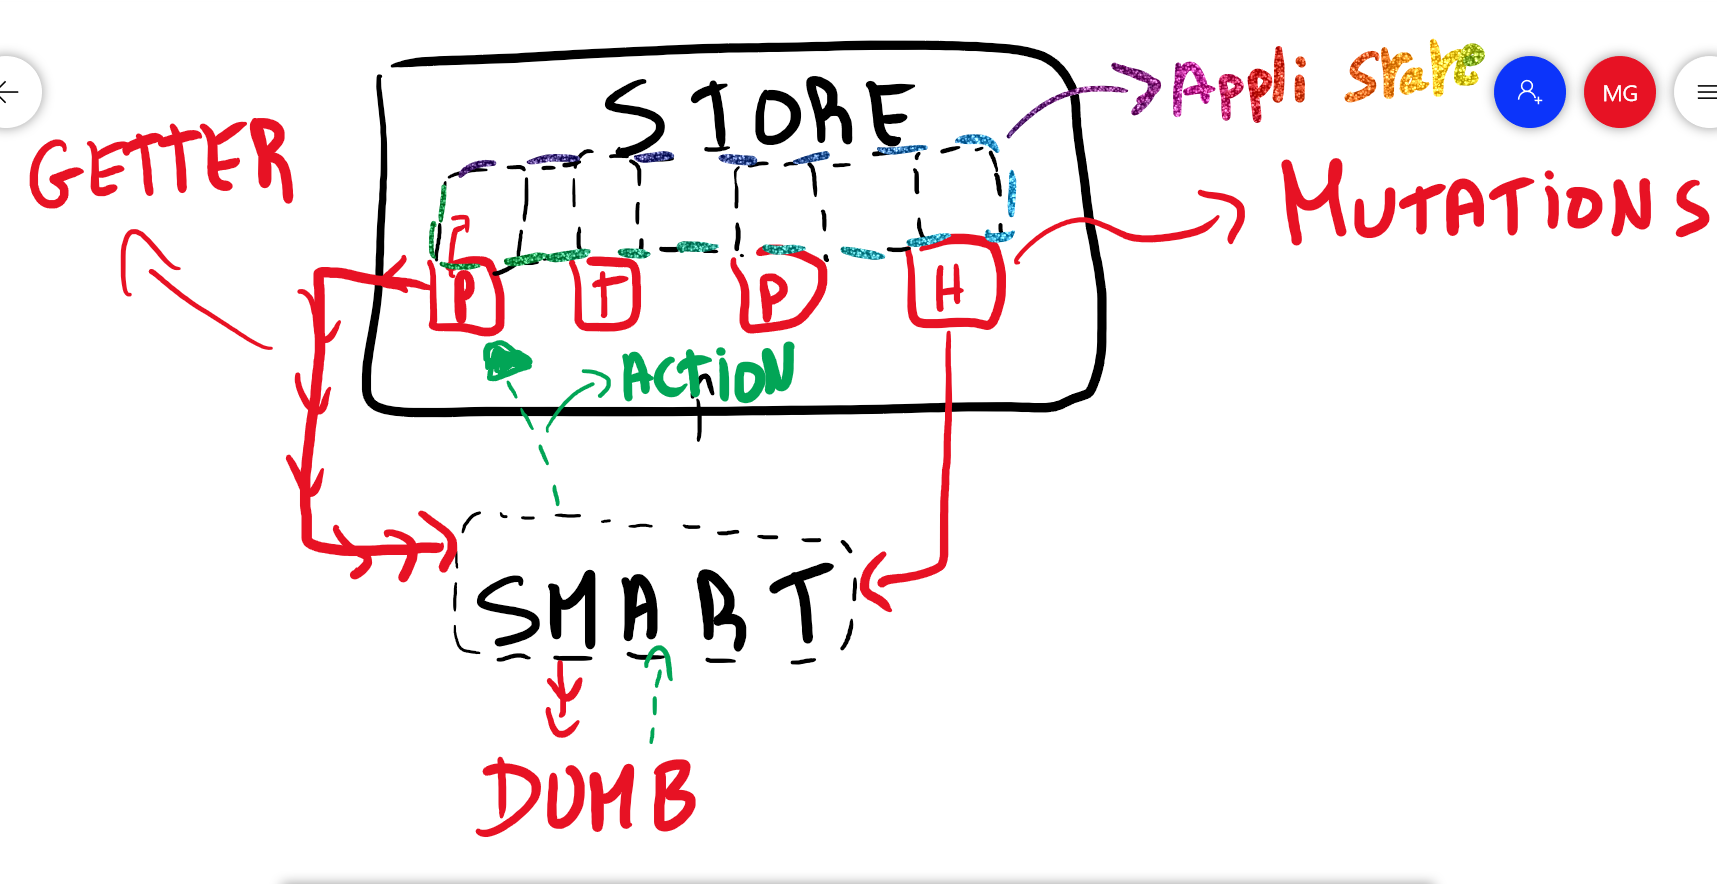 STORE
Appli State
MG
GETTER
MUTATIONS
P T P H
ACTION
SMART
DUMB